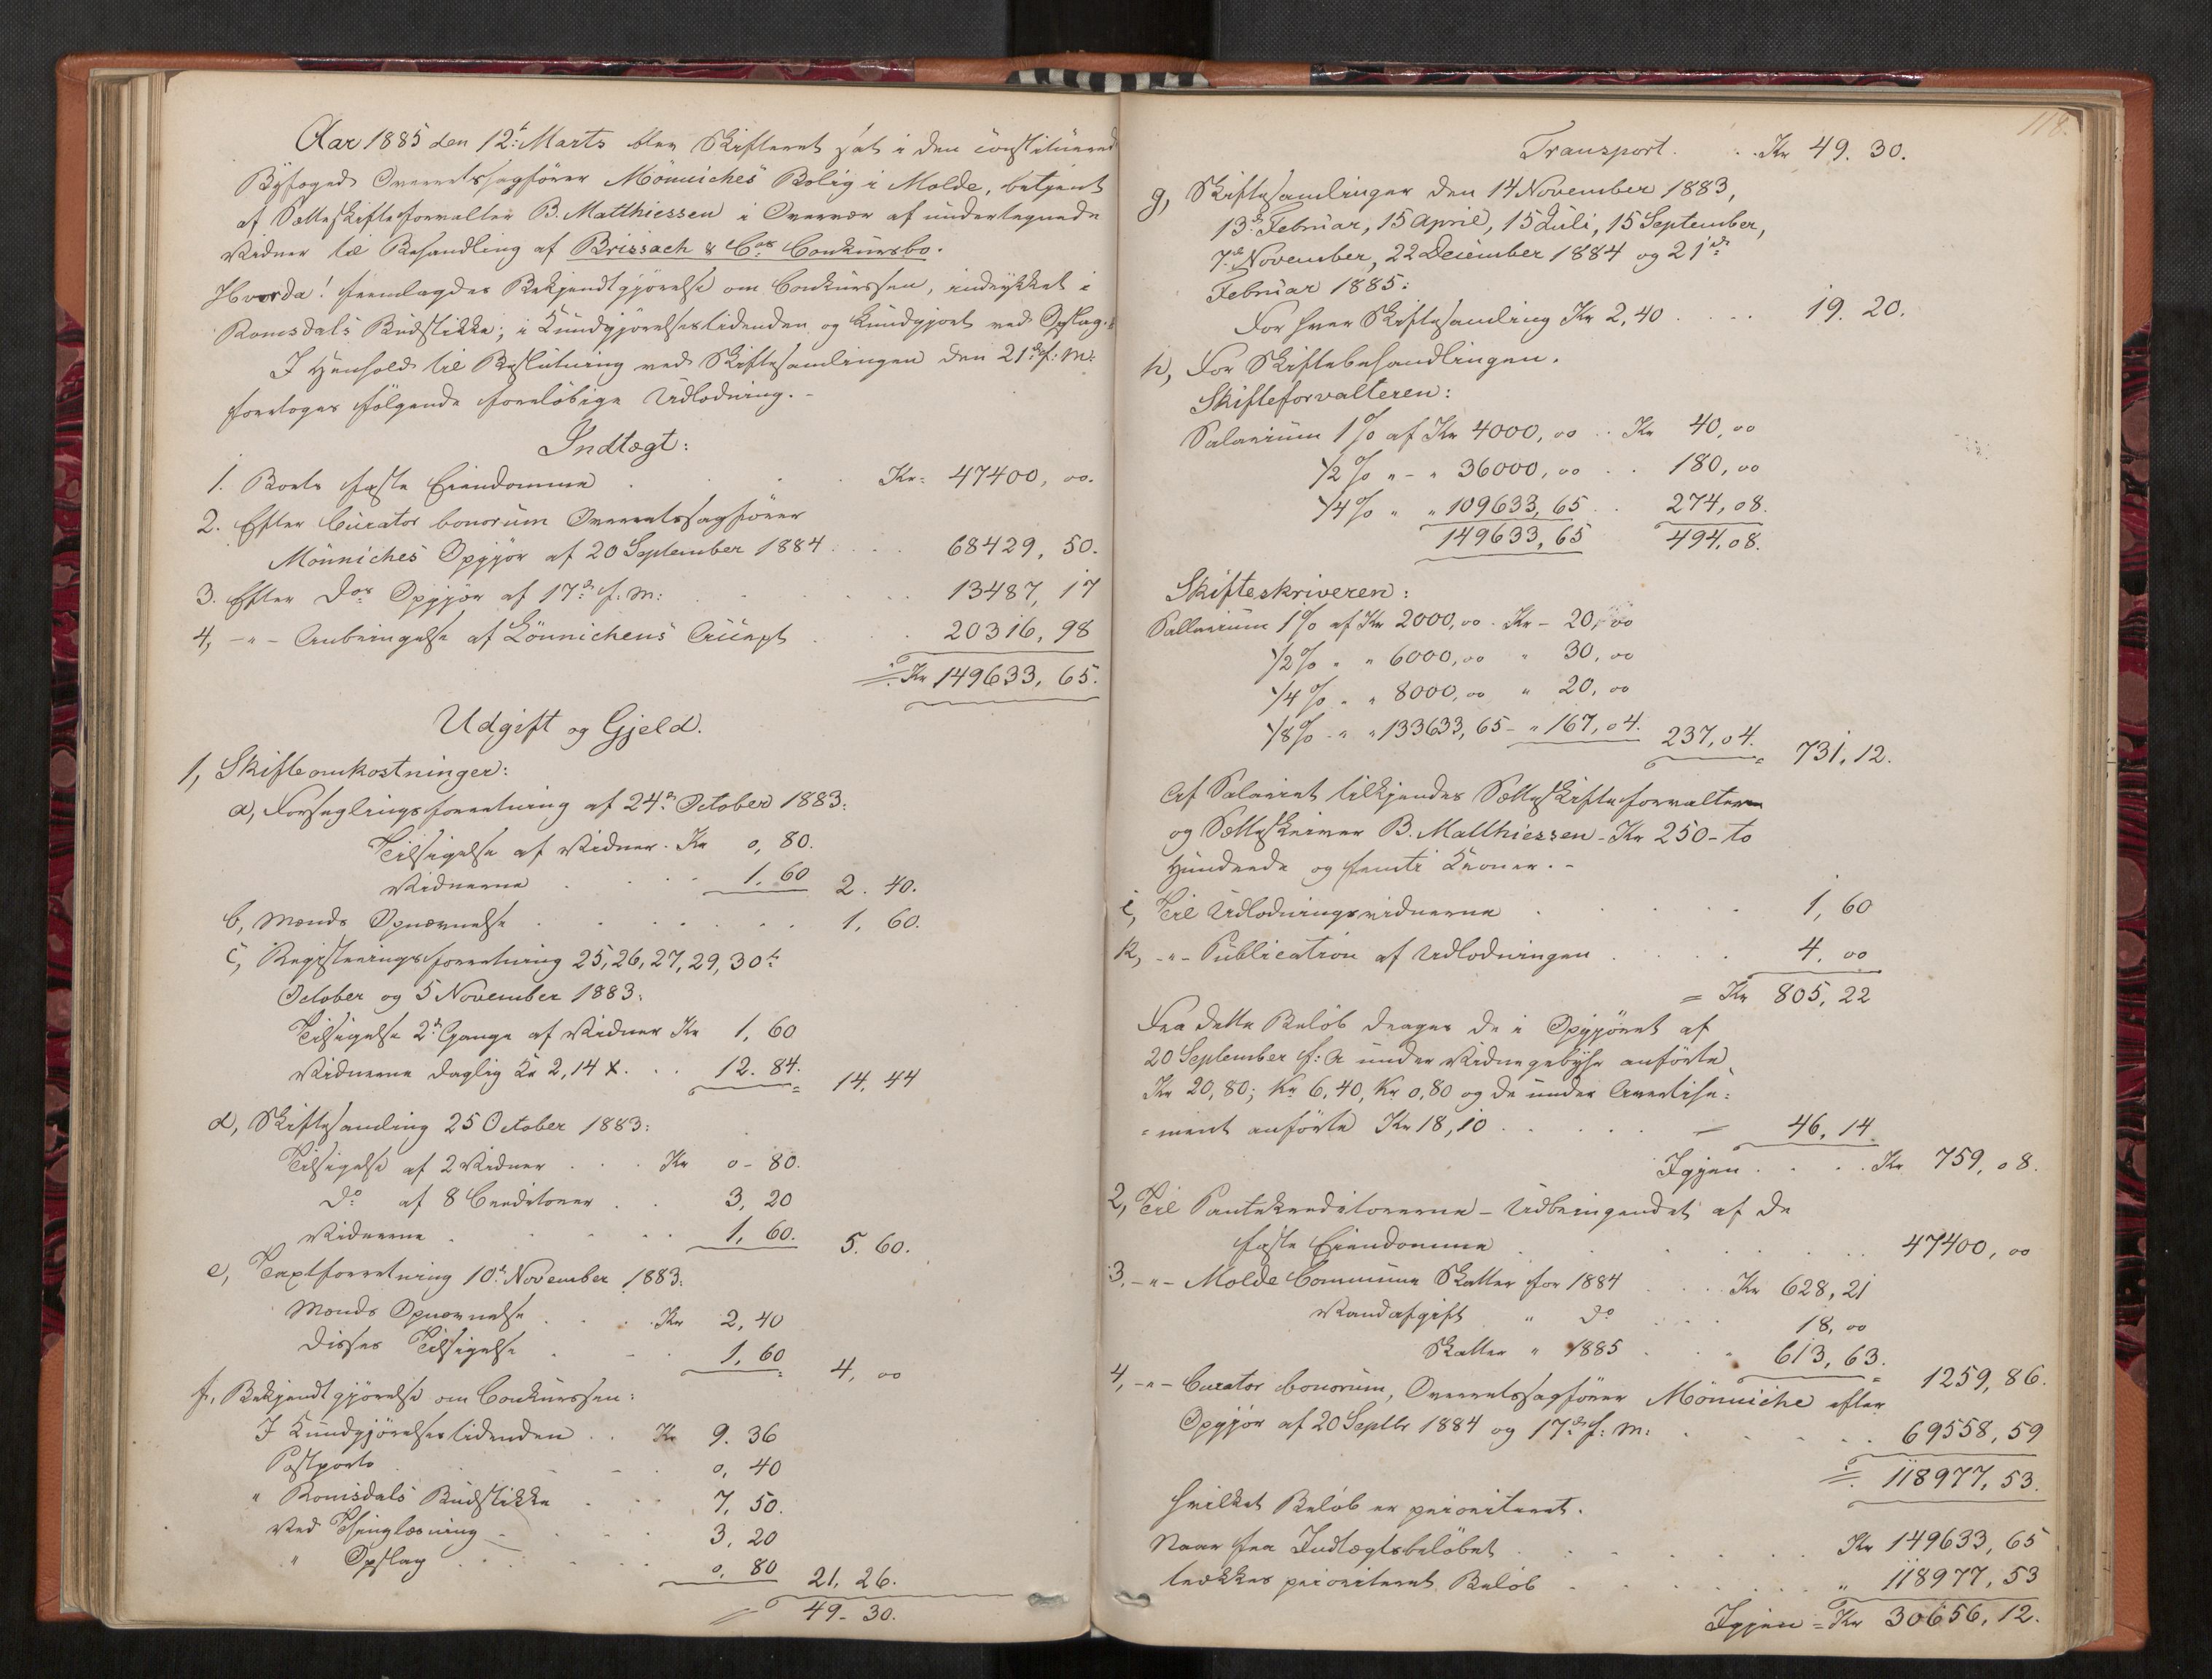 Aar 1885 den 12t Marts blev Skifteret sat i den constituered
Byfoged Overretssagfører Mønniches Bolig i Molde, betjent
af Sætteskifteforvalter B. Matthiessen i Overvær af undertegnede
Vidner til Behandling af Brissach & Cos Conkursbo.
Hvorda! fremlagdes Bekjendtgjørelse om Conkurssen, indrykket i
Romsdals Budstikke, i Kundgjørelsestidenden og kundgjort ved Opslag.
I Henhold til Beslutning ved Skiftesamlingen den 21de f: M:
foretoges følgende foreløbige Udlodning. -
Indtægt:
1. Boets faste Eiendomme . . . Kr: 47400, 00.
2. Efter Curator bonorum Overretssagfører
Mønniches Opgjør af 20 September 1884 . . . 68429, 50.
3. Efter Dos Opgjør af 17de f: M: . . . 13487, 17
4, -"- Anbringelse af Lønnichens Accept . . . 20316, 98
Kr 149633, 65.
Udgift og Gjeld.
1, Skifteomkostninger:
a, Forseglingsforretning af 24de October 1883:
Tilsigelse af Vidner . Kr 0, 80.
Vidnerne . . . 1, 60 2. 40.
b, Mænds Opnævnelse . . . 1, 60.
c, Registreringsforretning 25, 26, 27, 29, 30te
October og 5 November 1883:
Tilsigelse 2de Gange af Vidner Kr 1, 60
Vidnerne daglig Kr 2,14 x . . 12. 84. 14, 44
d, Skiftesamling 25 October 1883:
Tilsigelse af 2 Vidner . . . Kr 0 - 80.
Do af 8 Creditorer . . 3, 20
Vidnerne . . . 1, 60. 5. 60.
e, Taxtforretning 10de November 1883:
Mænds Opnævnelse . . . Kr 2, 40
Disses Tilsigelse . . . 1, 60 4, 00
f, Bekjendtgjørelse om Conkurssen:
I Kundgjørelsestidenden . . Kr 9. 36
Postporto . . . 0, 40
" Romsdals Budstikke . . . 7, 50.
Ved Thinglæsning . . . 3, 20
" Opslag . . . 0, 80 21, 26.
49 - 30.
118.
Transport . . . Kr 49. 30.
g, Skiftesamlinger den 14 November 1883,
13de Februar, 15 April, 15 Juli, 15 September,
7de November, 22 December 1884 og 21de
Februar 1885:
For hver Skiftesamling Kr 2,40 . . . . 19. 20.
h, For Skiftebehandlingen.
Skifteforvalteren:
Salarium 1 % af Kr 4000, 00 . . Kr 40, 00
1/2 % " - " 36000, 00 . . 180, 00
1/4 % " " 109633, 65 . . 274, 08.
149633, 65 494, 08.
Skifteskriveren:
Sallarium 1 % af Kr 2000, 00 . Kr - 20, 00
1/2 % " " 6000, 00 " 30, 00
1/4 % " " 8000, 00 " 20, 00
1/8 % - " " 133633, 65 - " 167, 04. 237, 04. 731, 12.
Af Salariet tilkjendes Sætteskifteforvalteren
og Sætteskriver B. Matthiessen - Kr 250 - to
Hundrede og femti Kroner. -
i, Til Udlodningsvidnerne . . . 1, 60
k, -"- Publication af Udlodningen . . . 4, 00
= Kr 805, 22
Fra dette Beløb drages de i Opgjøret af
20 September f: A under Vidnegebyhr anførte
Kr 20,80; Kr 6,40, Kr 0,80 og de under Avertise:
=ment anførte Kr 18,10 . . . 46, 14
Igjen . . . . Kr 759, 08.
2, Til Pantekreditorerne - Udbringendet af de
faste Eiendomme . . . 47400, 00
3, -"- Molde Commune Skatter for 1884 . . . Kr 628, 21
Vandafgift " Do . . . 18, 00
Skatter " 1885 . . . 613, 63. 1259, 86.
4, -"- Curator bonorum, Overretssagfører Mønniche efter
Opgjør af 20 Septbr 1884 og 17de f: M: . . . 69558, 59
118977, 53.
hvilket Beløb er prioriteret.
Naar fra Indtægtsbeløbet . . . Kr 149633, 65
trækkes prioriteret Beløb . . . " 118977, 53
Igjen = Kr 30656, 12.